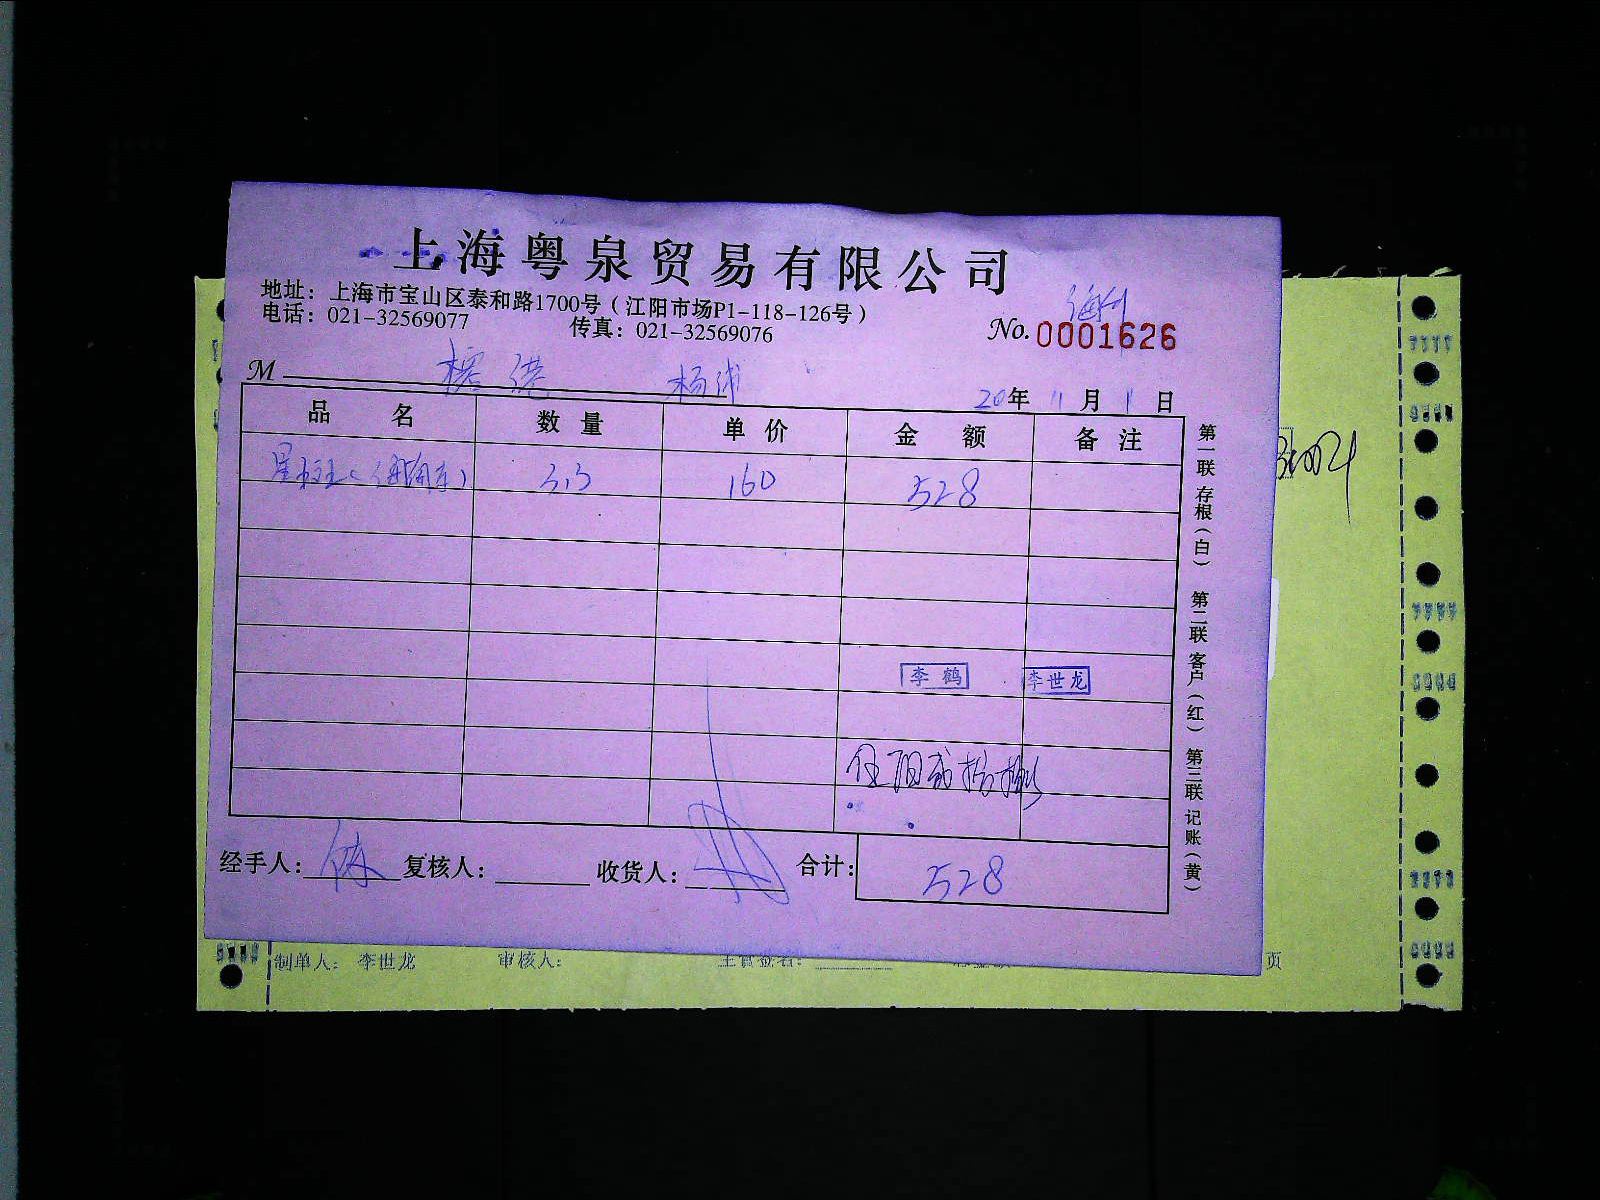 上海粤泉贸易有限公司
地址：上海市宝山区泰和路1700号（江阳市场P1-118-126号）
电话：021-32569077 传真：021-32569076
No. 0001626
M 杨浦
20年 11月 1日
品 名 数 量 单 价 金 额 备 注
3.3 160 528
李 鹤 李世龙
伍佰贰拾捌
经手人： 复核人： 收货人： 合计： 528
第一联 存根（白） 第二联 客户（红） 第三联 记账（黄）
制单人： 李世龙 审核人： 页